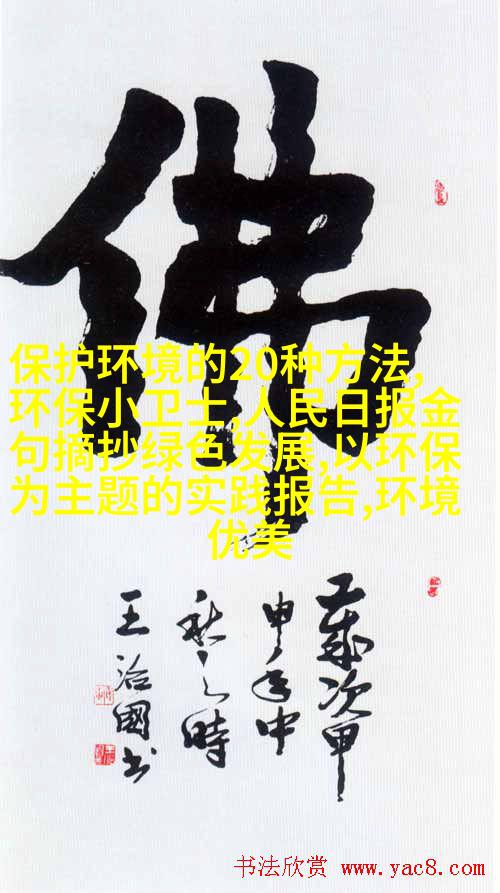 佛
保护环境的20种方法,
环保小卫士,人民日报金
句摘抄绿色发展,以环保
为主题的实践报告,环境
优美
岁次甲
申年中
秋之时
王治国书
书法欣赏 www.yac8.com